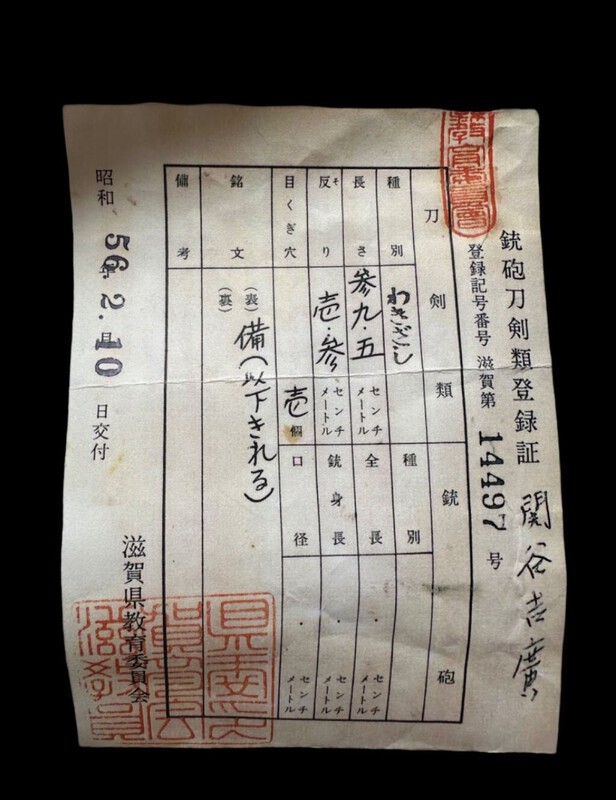 銃砲刀剣類登録証
関谷吉廣
登録記号番号 滋賀第 14497 号
教育委員会
刀剣類
銃砲
種別 わきざし
種別
長さ 参九.五 センチメートル
全長 . センチメートル
反り そ 壱.参 センチメートル
銃身長 . センチメートル
目くぎ穴 壱個
口径 . センチメートル
銘文
(表) 備(以下きれる)
(裏)
備考
昭和 56年 2.月 10 日交付
滋賀県教育委員会